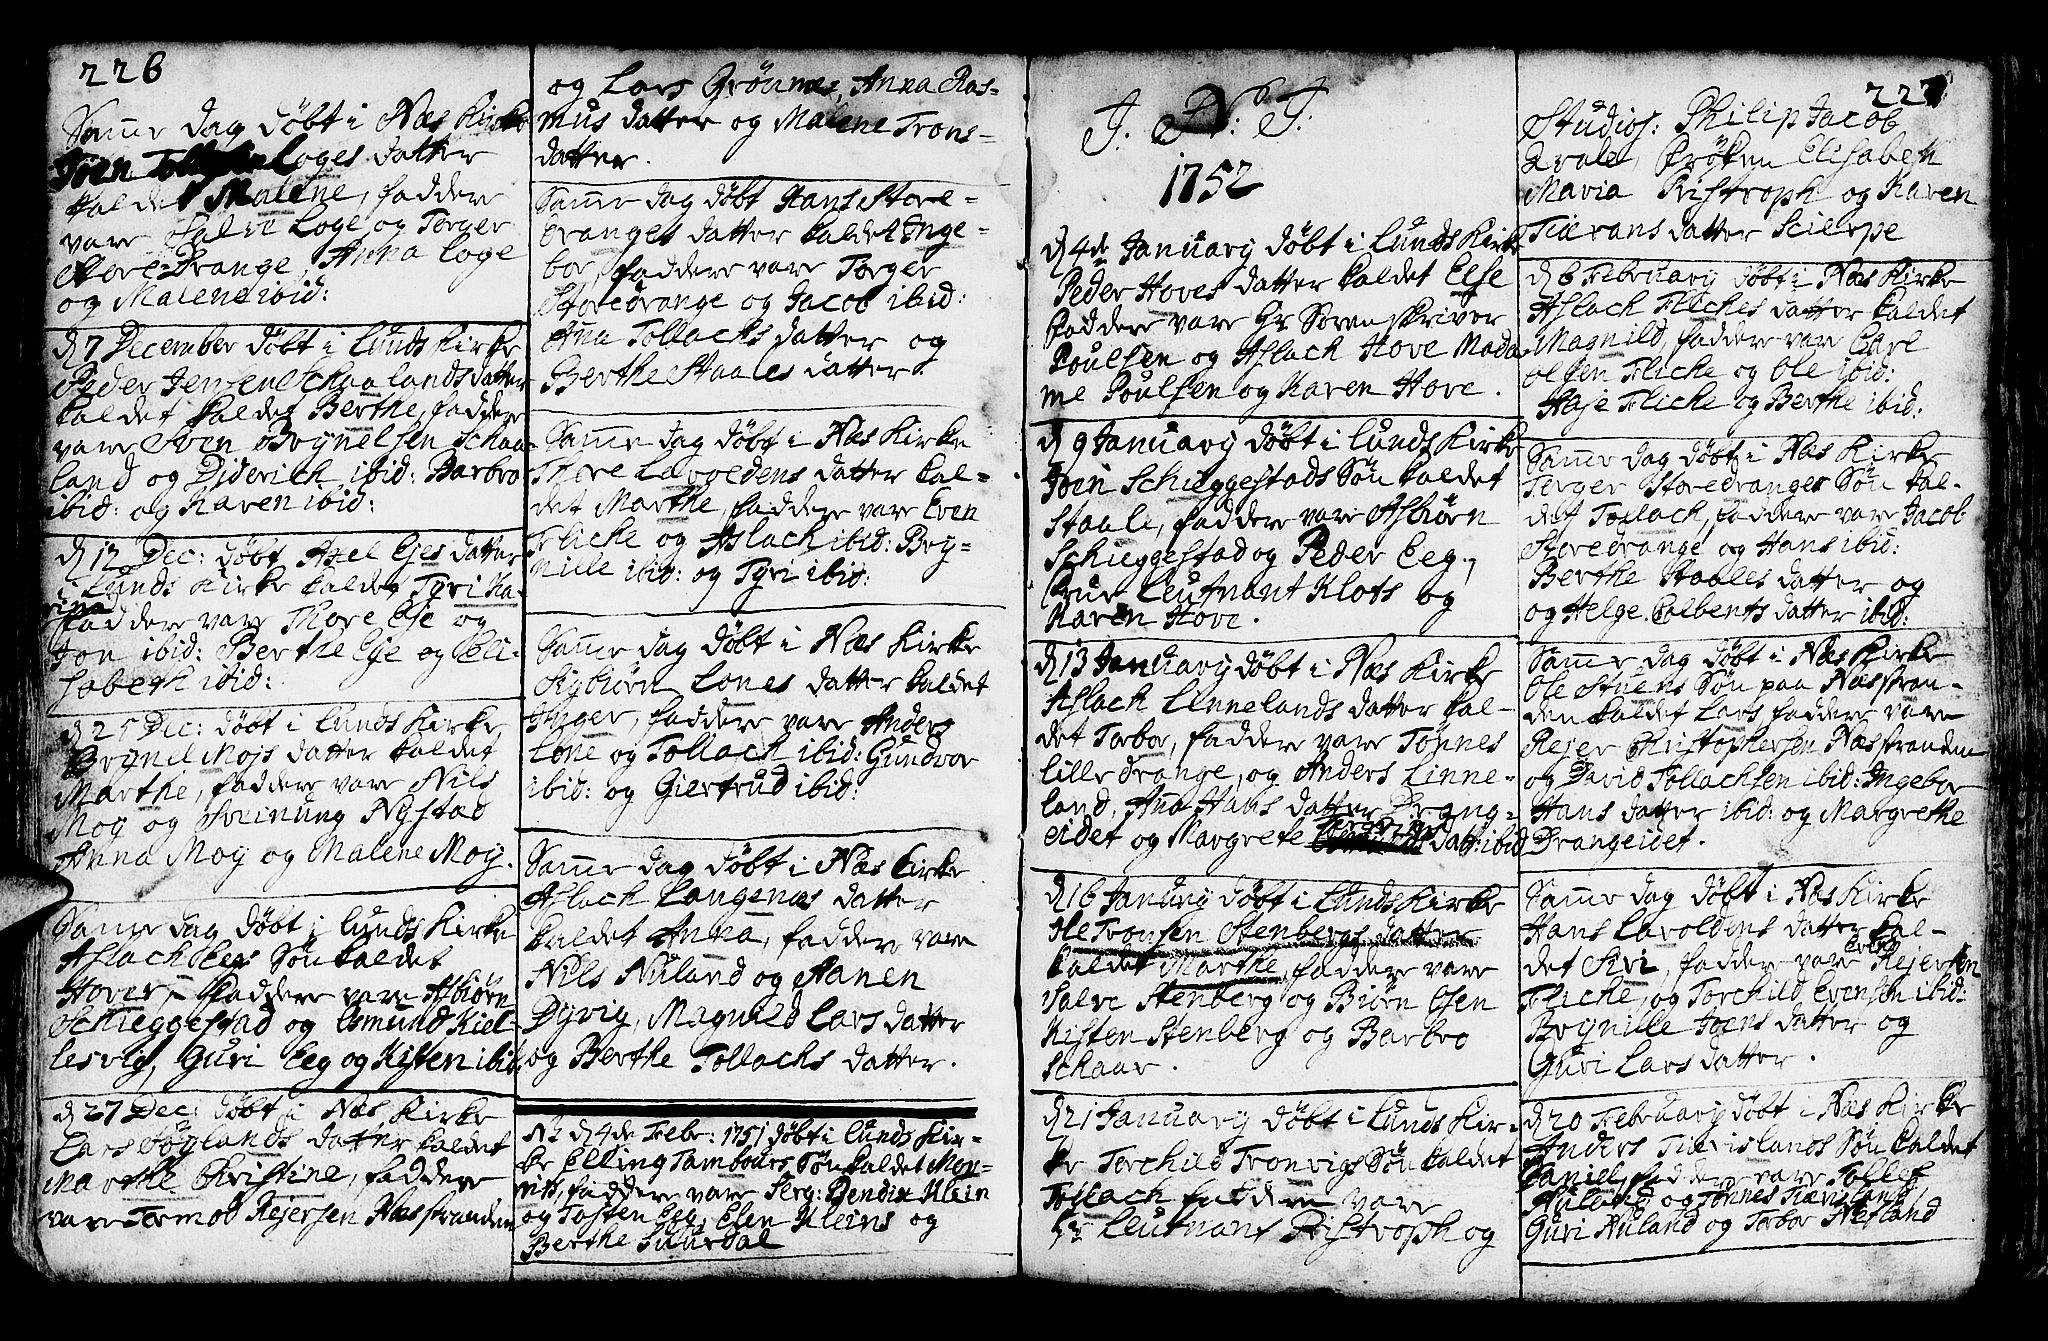 226
Same dag döbt i Næs Kirke
Joen Loges datter
kaldet Malene, faddere
vare Salve Loge og Torger
Storedrange, Anna Loge
og Malene ibid:
d 7 December döbt i Lunds Kirke
Peder Jensen Schaalands datter
kaldet kaldet Berthe, faddere
vare Sven Brynelsen Schaa-
land og Diderich ibid: Barbro
ibid: og Karen ibid:
d 12 Dec: döbt Axel Ejes datter
i Lunds Kirke kaldet Tyri Ka-
rina
faddere vare Thore Eje og
Jon ibid: Berthe Eje og Eli-
sabeth ibid:
d 25 Dec: döbt i Lunds Kirke
Brynel Mojs datter kaldet
Marthe, faddere vare Nils
Moy og Sveinung Nystad
Anna Moy og Malene Moy.
Same dag döbt i Lunds Kirke
Aslach Eegs Sön kaldet
Hover, faddere vare Asbiörn
Schieggestad og Osmund Kiel-
lesvig, Guri Eeg og Kisten ibid.
d 27 Dec: döbt i Næs Kirke
Lars Föylands datter kaldet
Marthe Christine, faddere
vare Tormod Rejersen Næsstranden
og Lars Grönnes, Anna Ras-
mus datter og Malene Trons-
datter.
Same dag döbt Hans Store-
dranges datter kaldet Inge-
bor, faddere vare Torger
Storedrange og Jacob ibid:
Ana Tollachs datter og
Berthe Staales datter.
Same dag döbt i Næs Kirke
Thore Lavoldens datter kal-
det Marthe, faddere vare Even
Flicke og Aslach ibid: Bry-
nille ibid: og Tyri ibid:
Same dag döbt i Næs Kirke
Sigbiörn Lones datter kaldet
Inger, faddere vare Anders
Lone og Tollach ibid: Gundvor
ibid: og Giertrud ibid:
Same dag döbt i Næs Kirke
Aslach Langenæs datter
kaldet Anna, faddere vare
Nils Nuland og Aanen
Dyvig, Magnild Lars datter
og Berthe Tollachs datter.
NB d 4de Febr: 1751 döbt i Lunds Kir-
ke Elling Tambours Sön kaldet Mon-
rits, faddere vare Serg: Bendix Klein
og Tosten Eeg, Elen Kleins og
Berthe Suurdal
J. N: J:
1752
d 4de January döbt i Lunds Kirke
Peder Hoves datter kaldet Else
faddere vare Hr Sorenskriver
Poulsen og Aslach Hove Mada-
me Poulsen og Karen Hove.
d 9 January döbt i Lunds Kirke
Joen Schieggestads Sön kaldet
Staale, faddere vare Asbiörn
Schieggestad og Peder Eeg,
frue Leutnant Klots og
Karen Hove.
d 13 January döbt i Næs Kirke
Aslach Linnelands datter kal-
det Torbor, faddere vare Tönnes
lilledrange, og Anders Linne-
land, Ana Hans datter Drang-
eidet og Margrete dat: ibid
d 16 January döbt i Lunds Kirke
Ole Tronsen Stenbergs datter
kaldet Marthe, faddere vare
Salve Stenberg og Biörn Olsen
Kisten Stenberg og Barbro
Schaar.
d 21 January döbt i Lunds Kir-
ke Torchild Tronvigs Sön kaldet
Tollach faddere vare
Hr Leutnant Ristroph og
227
Studios: Philip Jacob
Qvale, fröken Elisabeth
Maria Ristroph og Karen
Tiærans datter Scierpe
d 6 February döbt i Næs Kirke
Aslach Fliches datter kaldet
Magnild, faddere vare Carl
Olsen Flicke og Ole ibid:
Aase Flicke og Berthe ibid:
Same dag döbt i Næs Kirke
Torger Storedranges Sön kal-
det Tollach, faddere vare Jacob
Storedrange og Hans ibid:
Berthe Staales datter og
og Helge Colbents datter ibid:
Same dag döbt i Næs Kirke
Ole Stuens Sön paa Næsstran-
den kaldet Lars, faddere vare
Rejer Christophersen Næsstranden
og David Tollachsen ibid: Ingebor
Hans datter ibid: og Margrethe
Drangeidet.
Same dag döbt i Næs Kirke
Hans Lavoldens datter kal-
det Siri, faddere vare Rejersen
Flicke, og Torchild Evensen ibid:
Brynille Joens datter og
Guri Lars datter.
d 20 February döbt i Næs Kirke
Anders Tiærislands Sön kaldet
Daniel, faddere vare Tollef
Nuland og Tönnes Tiærisland
Guri Nuland og Torbor Netland